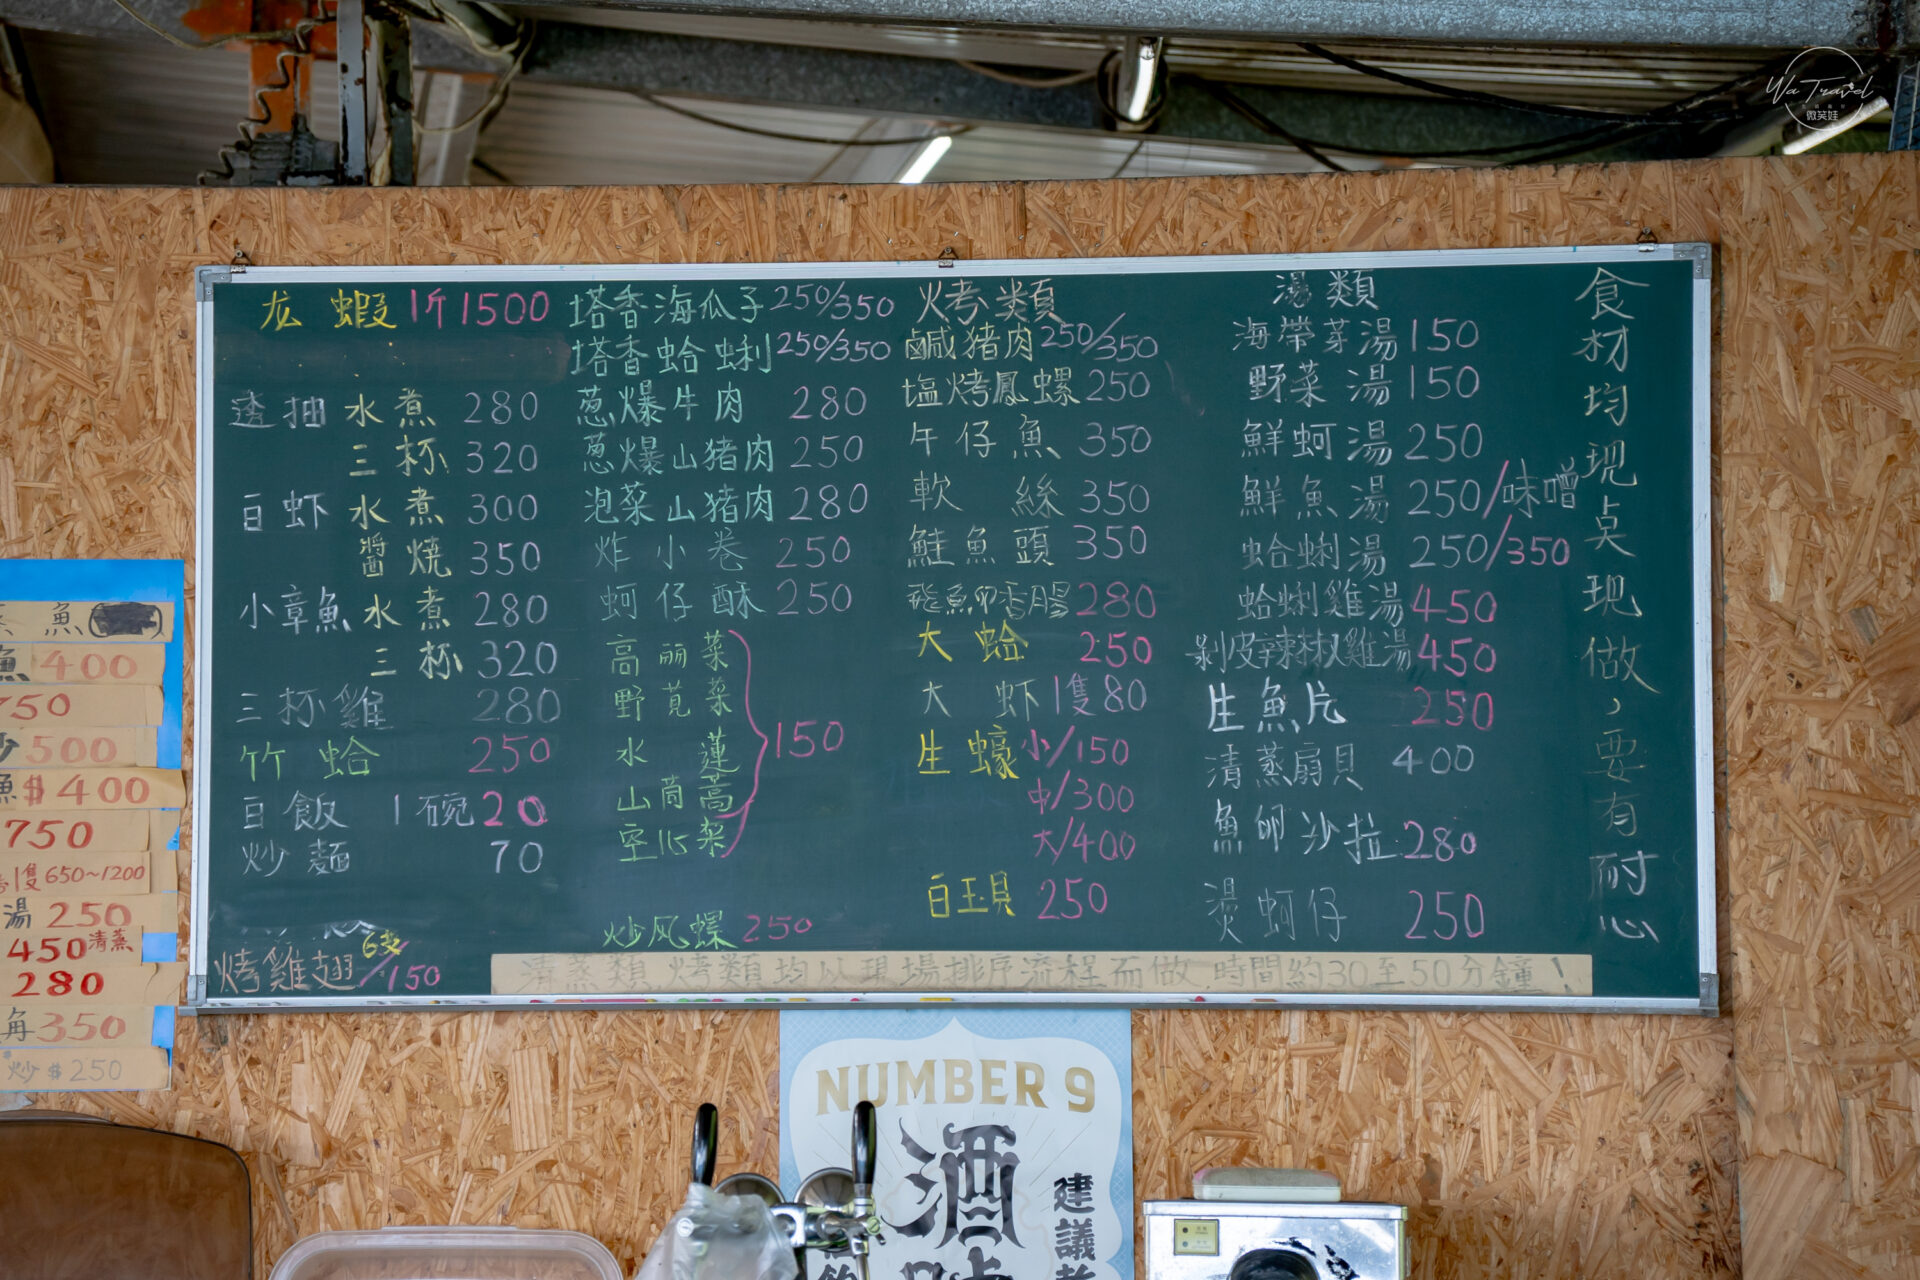 龙蝦 1斤1500
透抽 水煮 280
三杯 320
白虾 水煮 300
醬燒 350
小章魚 水煮 280
三杯 320
三杯雞 280
竹蛤 250
白飯 1碗20
炒麵 70
烤雞翅 6支/150
塔香海瓜子250/350
塔香蛤蜊250/350
葱爆牛肉 280
葱爆山猪肉 250
泡菜山猪肉 280
炸小卷 250
蚵仔酥 250
高丽菜
野莧菜
水蓮
山茼蒿
空心菜
150
炒风螺 250
烤類
鹹猪肉250/350
塩烤鳳螺250
午仔魚 350
軟絲 350
鮭魚頭 350
飛魚卵香腸280
大蛤 250
大虾1隻80
生蠔 小/150
中/300
大/400
白玉貝 250
湯類
海帶芽湯150
野菜湯150
鮮蚵湯250
鮮魚湯250/味噌
蛤蜊湯250/350
蛤蜊雞湯450
剝皮辣椒雞湯450
生魚片 250
清蒸扇貝 400
魚卵沙拉280
燙蚵仔 250
食材均現桌現做，要有耐心
清蒸類.烤類均以現場排序流程而做.時間約30至50分鐘！
魚
魚400
750
炒500
魚$400
750
1隻650~1200
湯250
450清蒸
280
角350
炒$250
NUMBER 9
酒
建議
Wa Travel
微笑娃